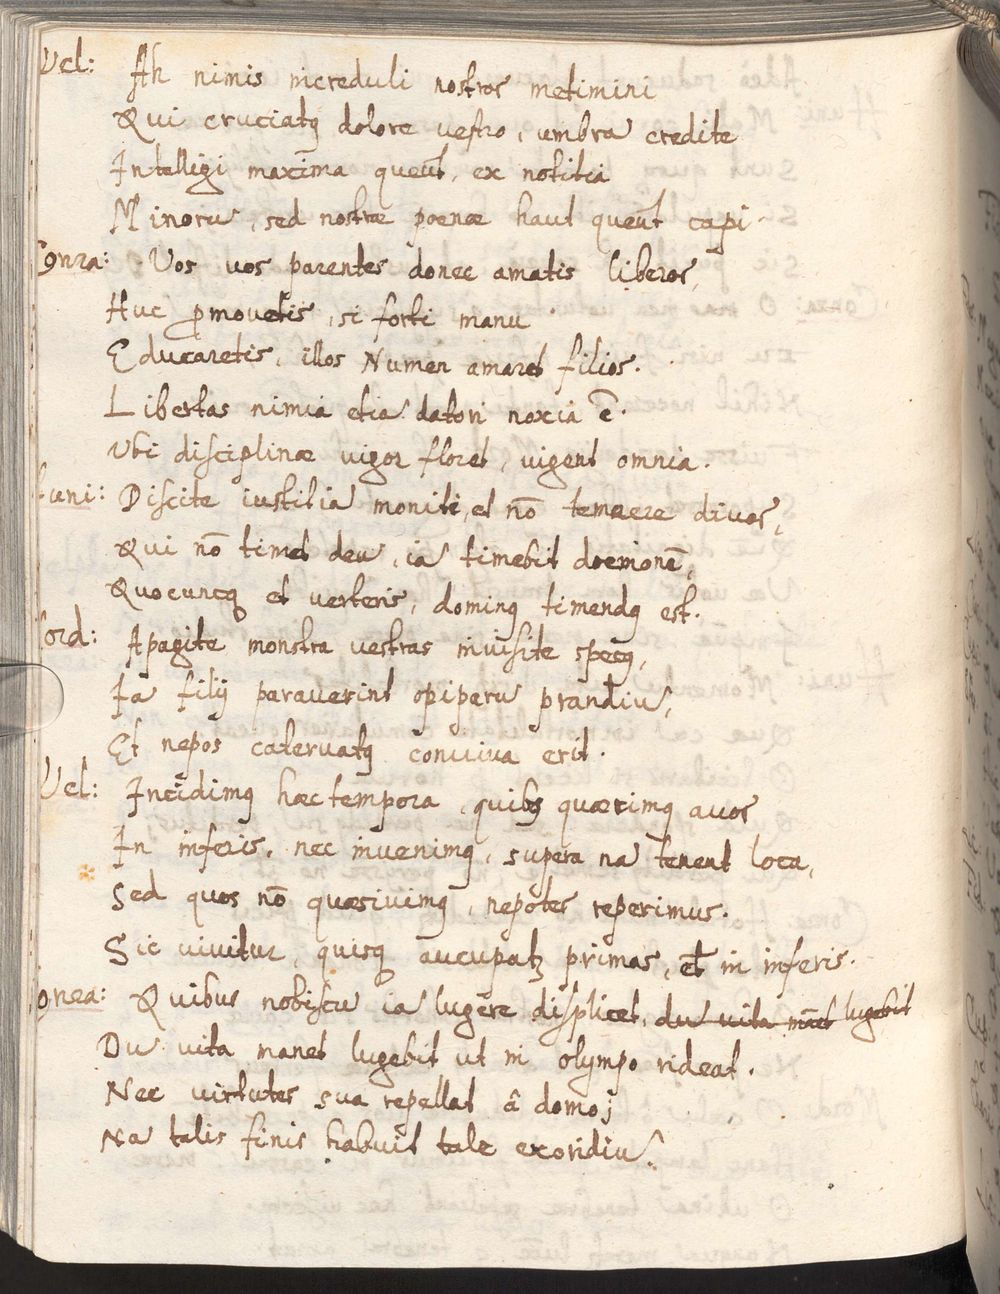 Vel: Ah nimis increduli nostros metimini
Qui cruciatꝯ dolore vestro, umbra credite
Intelligi maxima queūt, ex notitia
Minorū, sed nostræ poenæ haut queūt capi.
Cꝯnra: Vos vos parentes donec amatis liberos,
Huc ꝓmovetis, si forti manu
Educaretis, illos Numen amaret filios.
Libertas nimia etiā datori noxia ē.
Ubi disciplinæ vigor floret, vigent omnia.
Huni: Discite iustitiā moniti, et nō temnere divos,
Qui nō timet deū, iā timebit doemonē,
Quocuncq et verteris, dominꝯ timendꝯ est.
Cord: Apagite monstra vestras invisite specꝯ,
Iā filij paraverint opiparū prandiū,
Et nepos catervatꝯ conviva erit.
Vel: Incidimꝯ hæc tempora, quibꝯ quærimꝯ avos
In inferis, nec invenimꝯ, supera nā tenent loca,
Sed quos nō quæsivimꝯ, nepotes reperimus.
Sic vivitur, quisq aucupatꝛ primas, et in inferis.
Cꝯnra: Quibus nobiscū iā lugēre displicet, dū vita manet lugebit
Dū vita manet lugebit ut in olympo rideat.
Nec virtutes sua repellat â domo,
Nā talis finis habuit tale exordiū.